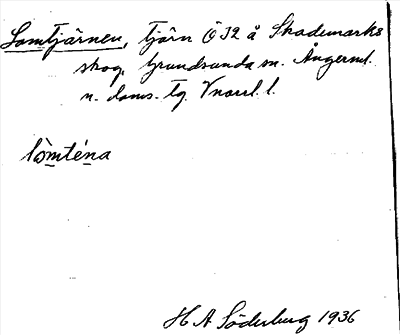 Lomtjärnen, tjärn Ö 32 å Skademarks
skog, Grundsunda sn. Ångerml.
n. doms. tg. Vnorrl. l.
lòmténa
H A Söderberg 1936